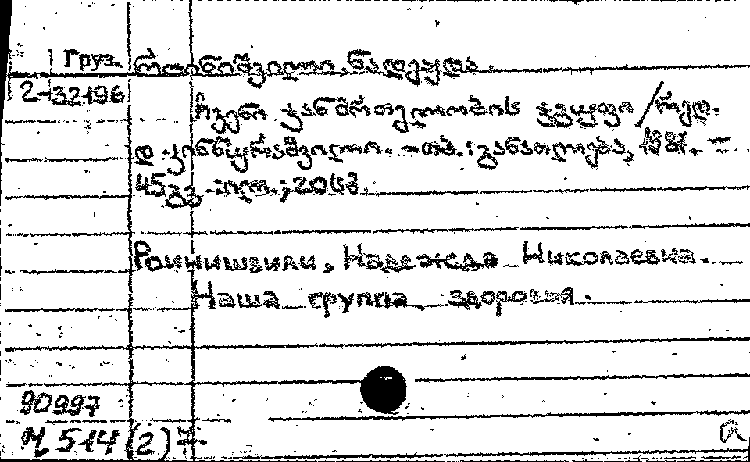 Груз. როინიშვილი, ნადეჟდა.
2-32196 ჩვენი ჯანმრთელობის ჯგუფი / რედ.
დ. კინწურაშვილი. -თბ.: განათლება, 1981. -
45გვ. ილ.; 20სმ.
Роинишвили, Надежда Николаевна.
Наша группа здоровья.
90997
514 (2)